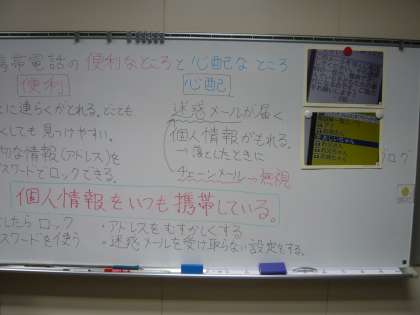 携帯電話の便利なところと心配なところ
便利
心配
に連らくがとれる。とても
くしても見つけやすい。
切な情報(アドレス)を
スワードとロックできる。
迷惑メールが届く
個人情報がもれる。
→落としたときに
チェーンメール→無視
ロック
個人情報をいつも携帯している。
したらロック
スワードを使う
・アドレスをむずかしくする
・迷惑メールを受け取らない設定をする。